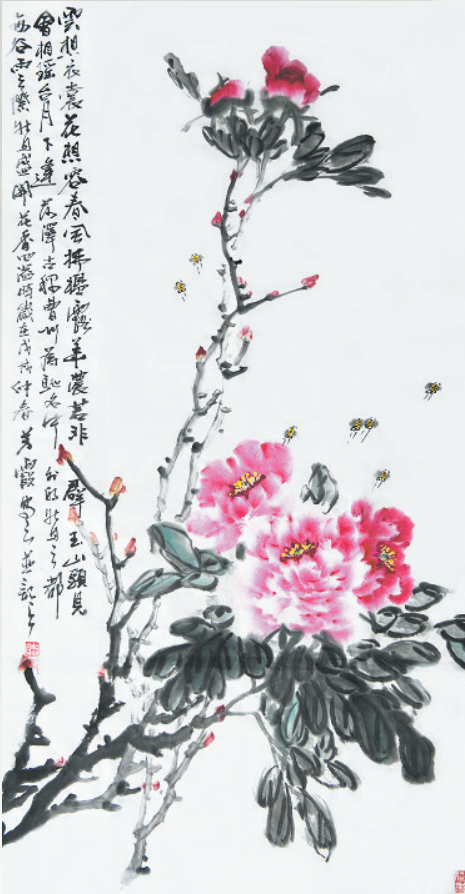 雲想衣裳花想容春風拂檻露華濃若非羣玉山頭見
會相瑶台月下逢菏澤古稱曹州為馳名中外的牡丹之都
每谷雨之際牡丹盛開花香四溢時歲在戊戌仲春並記之